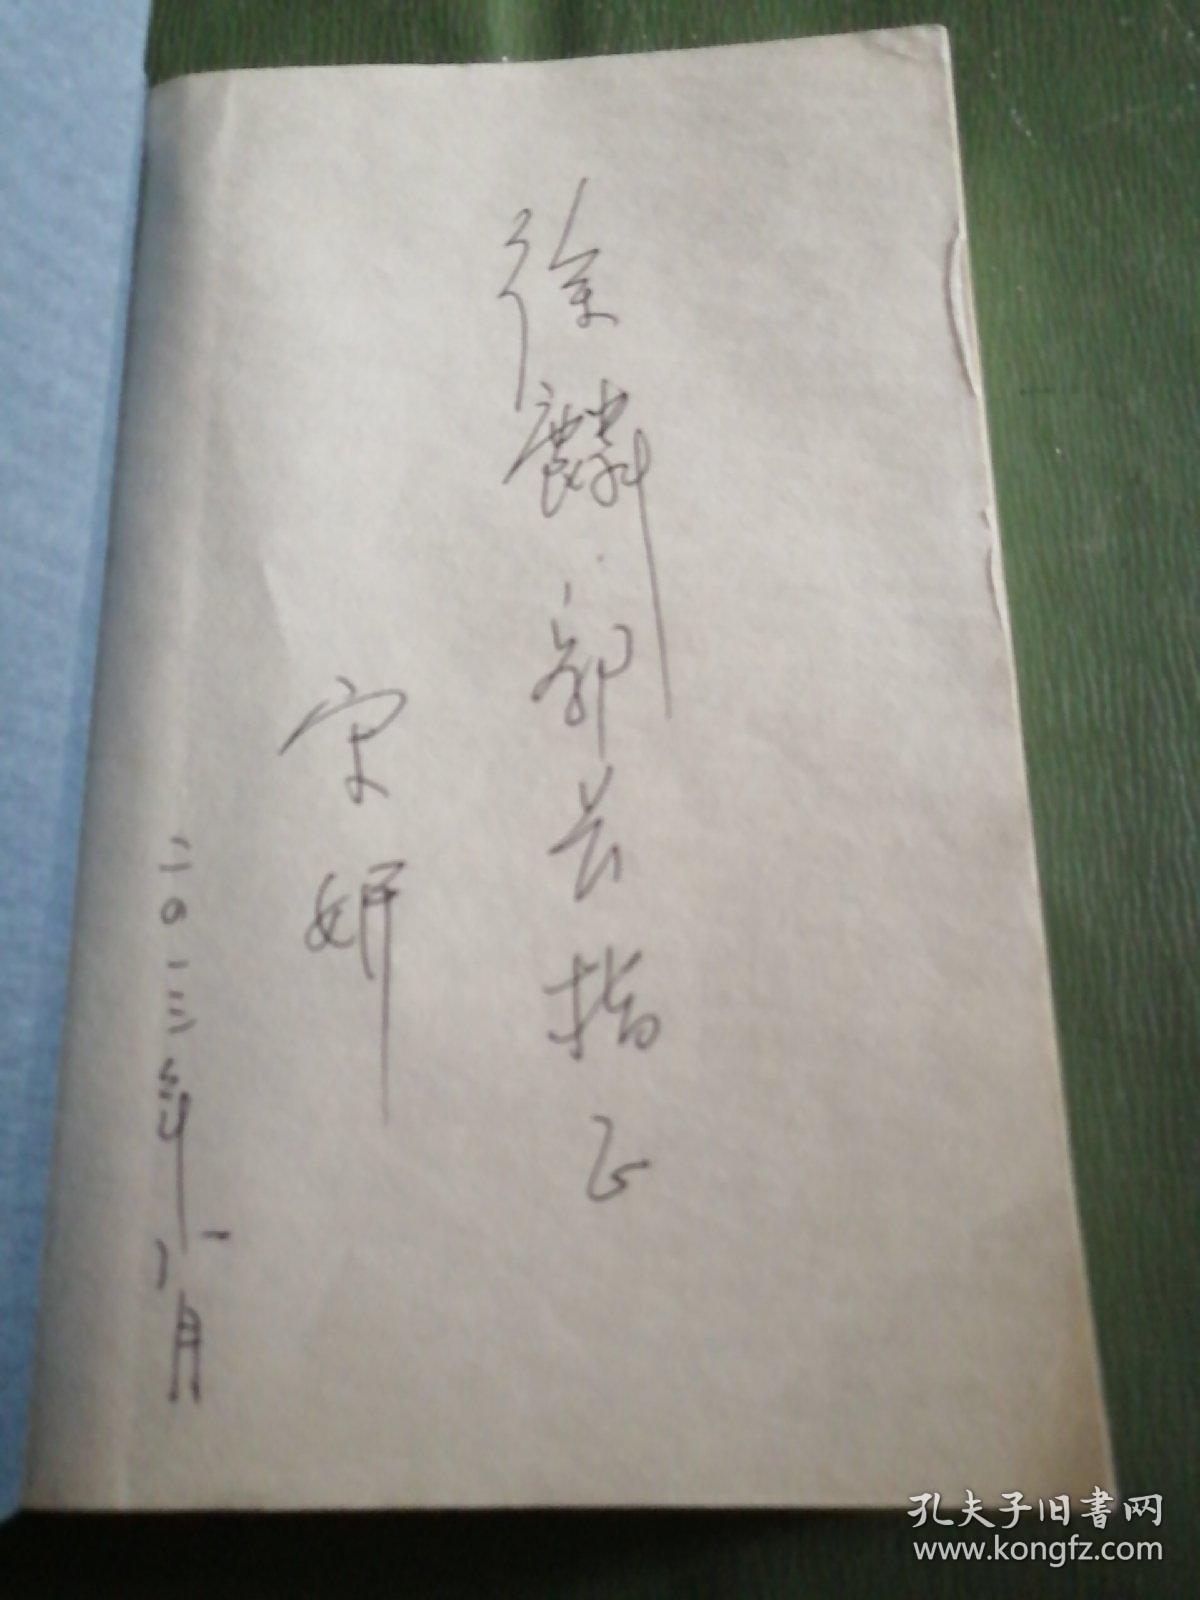 徐麟部长指正
宋妍
二〇一三年八月
孔夫子旧书网
www.kongfz.com